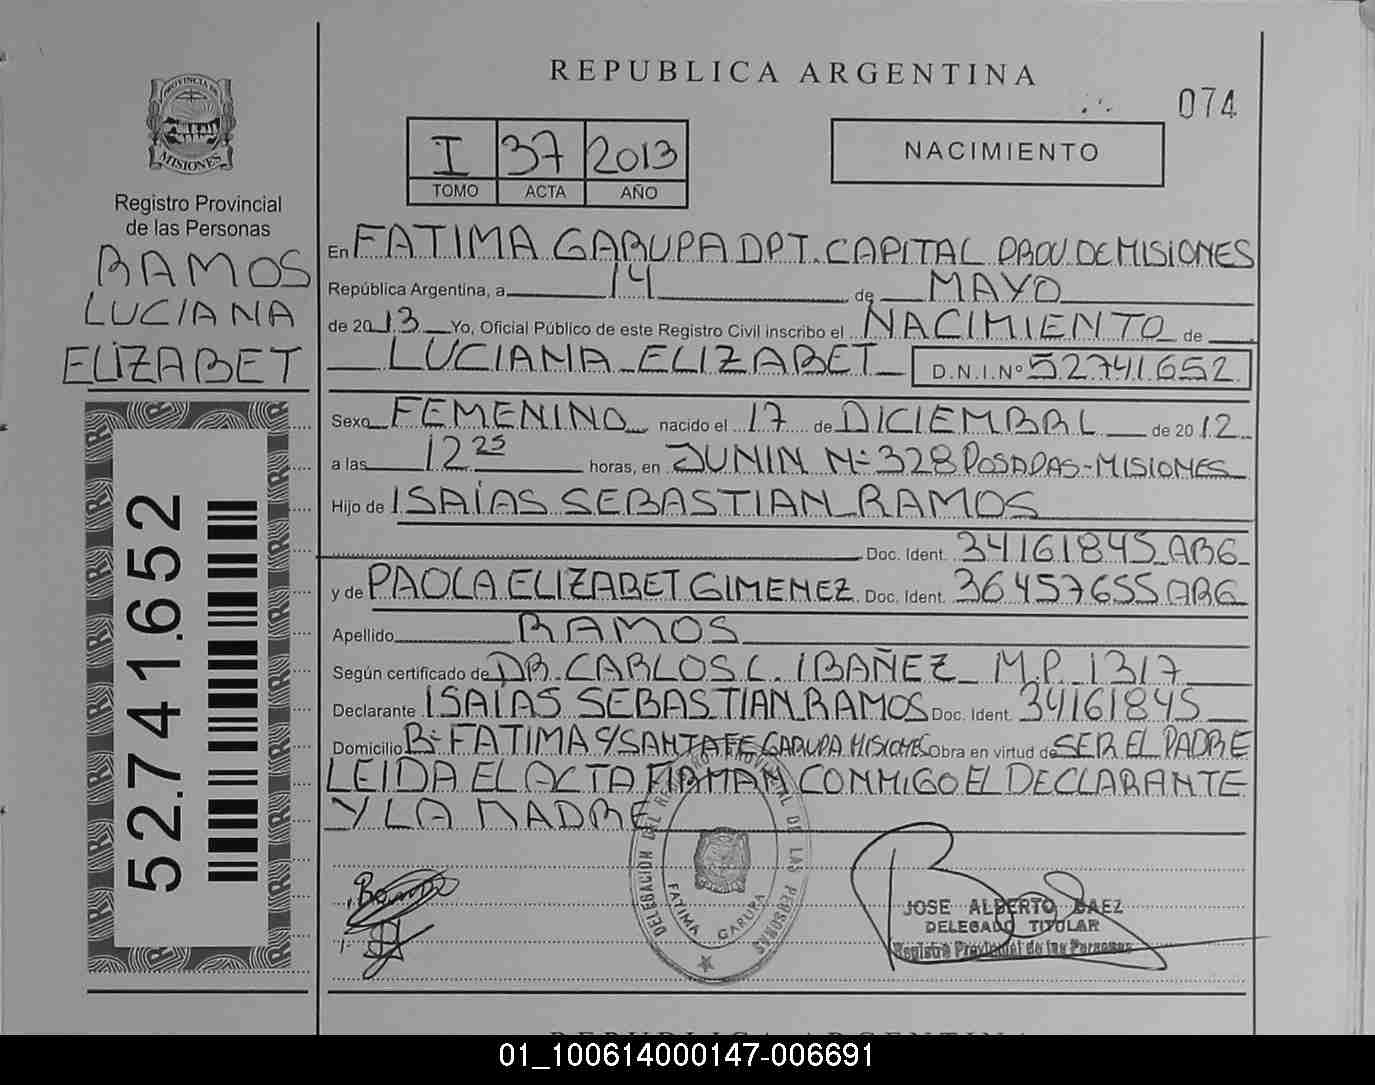 REPUBLICA ARGENTINA
074
PROVINCIA DE
MISIONES
Registro Provincial
de las Personas
RAMOS
LUCIANA
ELIZABET
52.741.652
I 37 2013
TOMO ACTA AÑO
NACIMIENTO
En FATIMA GARUPA DPT. CAPITAL PROV. DE MISIONES
República Argentina, a 14 de MAYO
de 2013 Yo, Oficial Público de este Registro Civil inscribo el NACIMIENTO de
LUCIANA ELIZABET D.N.I.Nº 52.741.652
Sexo FEMENINO nacido el 17 de DICIEMBRE de 2012
a las 12 25 horas, en JUNIN Nº 328 POSADAS-MISIONES
Hijo de ISAÍAS SEBASTIAN RAMOS
Doc. Ident. 34161845 ARG
y de PAOLA ELIZABET GIMENEZ Doc. Ident. 36457655 ARG
Apellido RAMOS
Según certificado de DR. CARLOS C. IBAÑEZ M.P. 1317
Declarante ISAÍAS SEBASTIAN RAMOS Doc. Ident. 34161845
Domicilio Bº FATIMA C/SANTA FE GARUPA MISIONES Obra en virtud de SER EL PADRE
LEIDA EL ACTA FIRMAN CONMIGO EL DECLARANTE
Y LA MADRE
DELEGACION DEL REGISTRO PROVINCIAL DE LAS PERSONAS
FATIMA GARUPA
JOSE ALBERTO BAEZ
DELEGADO TITULAR
Registro Provincial de las Personas
REPUBLICA ARGENTINA
01_100614000147-006691